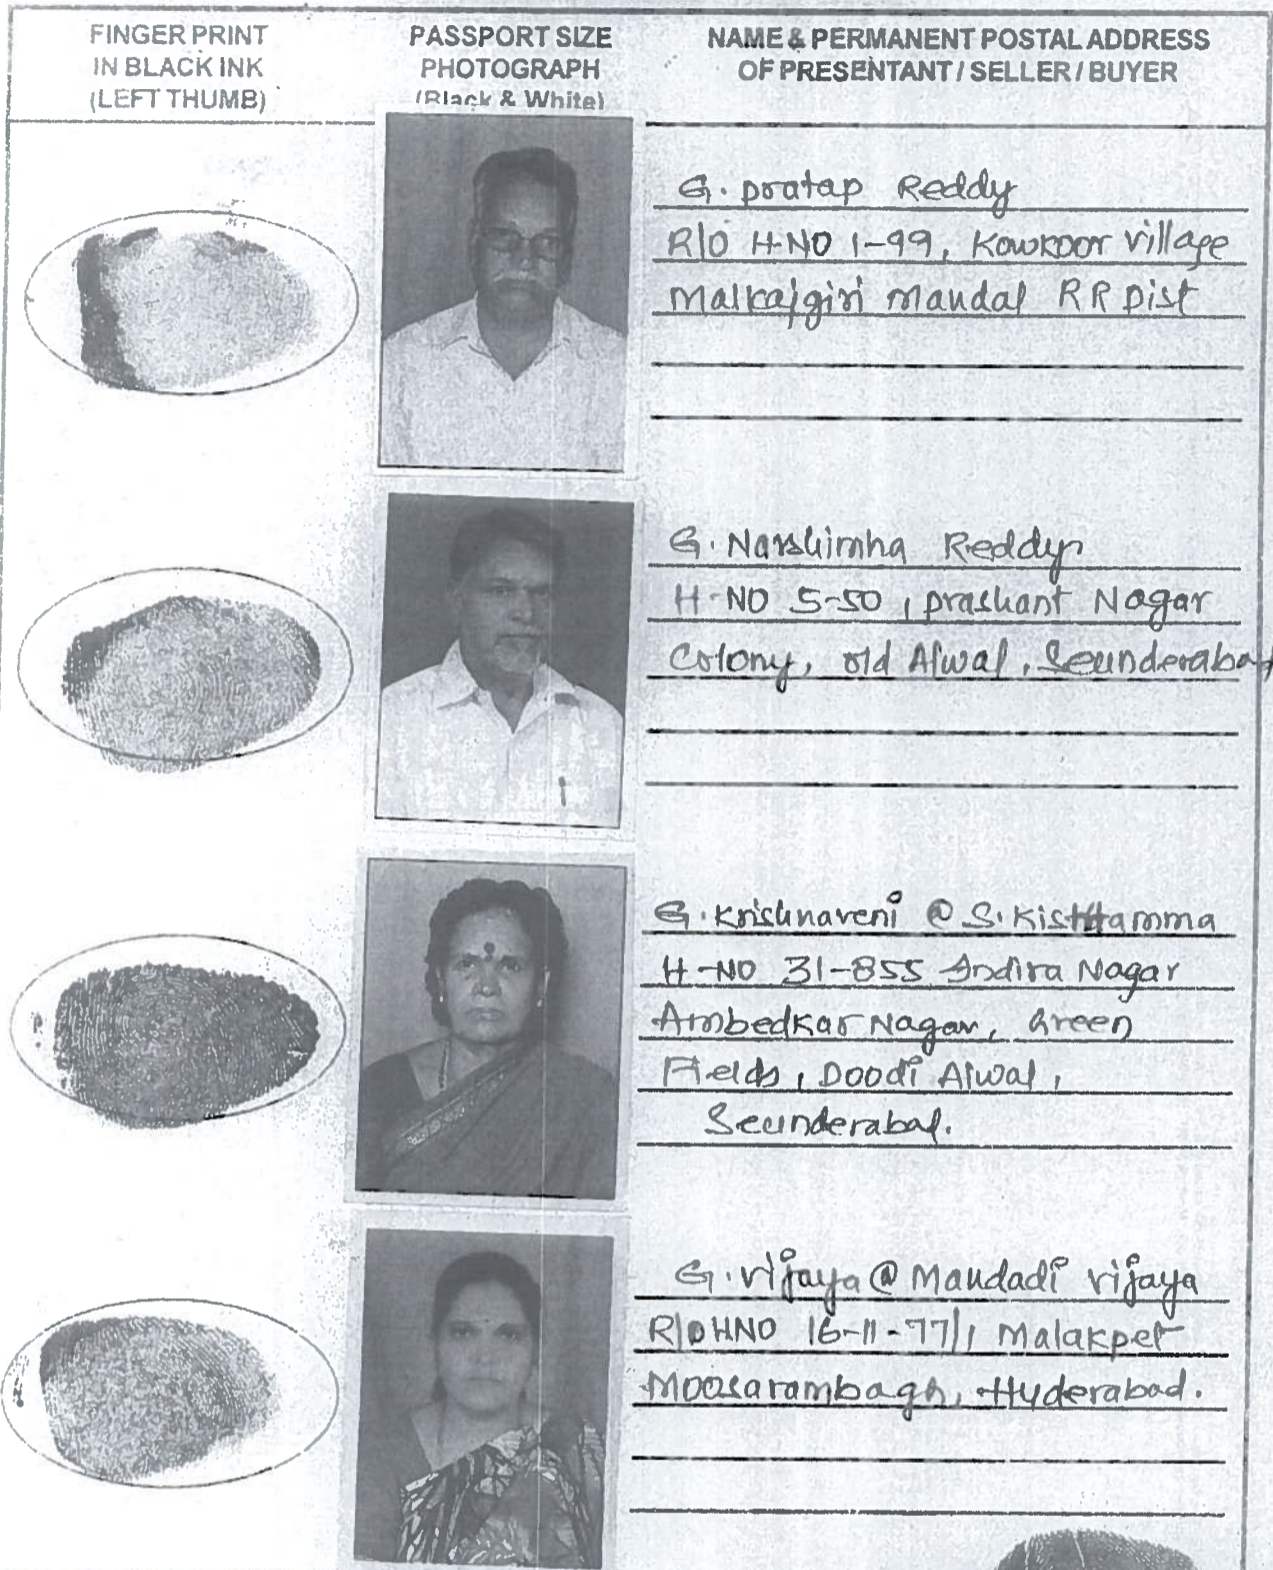 FINGER PRINT
IN BLACK INK
(LEFT THUMB)
PASSPORT SIZE
PHOTOGRAPH
(Black & White)
NAME & PERMANENT POSTAL ADDRESS
OF PRESENTANT / SELLER / BUYER
G. pratap Reddy
R/O H-NO 1-99, Kowkoor village
Malkajgiri Mandal RR Dist
G. Narshimha Reddy
H-NO 5-50, prashant Nagar
Colony, old Alwal, Seunderabad
G. Krishnaveni @ S. Kisttamma
H-NO 31-855 Indira Nagar
Ambedkar Nagar, Green
Fields, Doodi Alwal,
Seunderabad.
G. vijaya @ Mandadi vijaya
R/O HNO 16-11-77/1 Malakpet
Moosarambagh, Hyderabad.